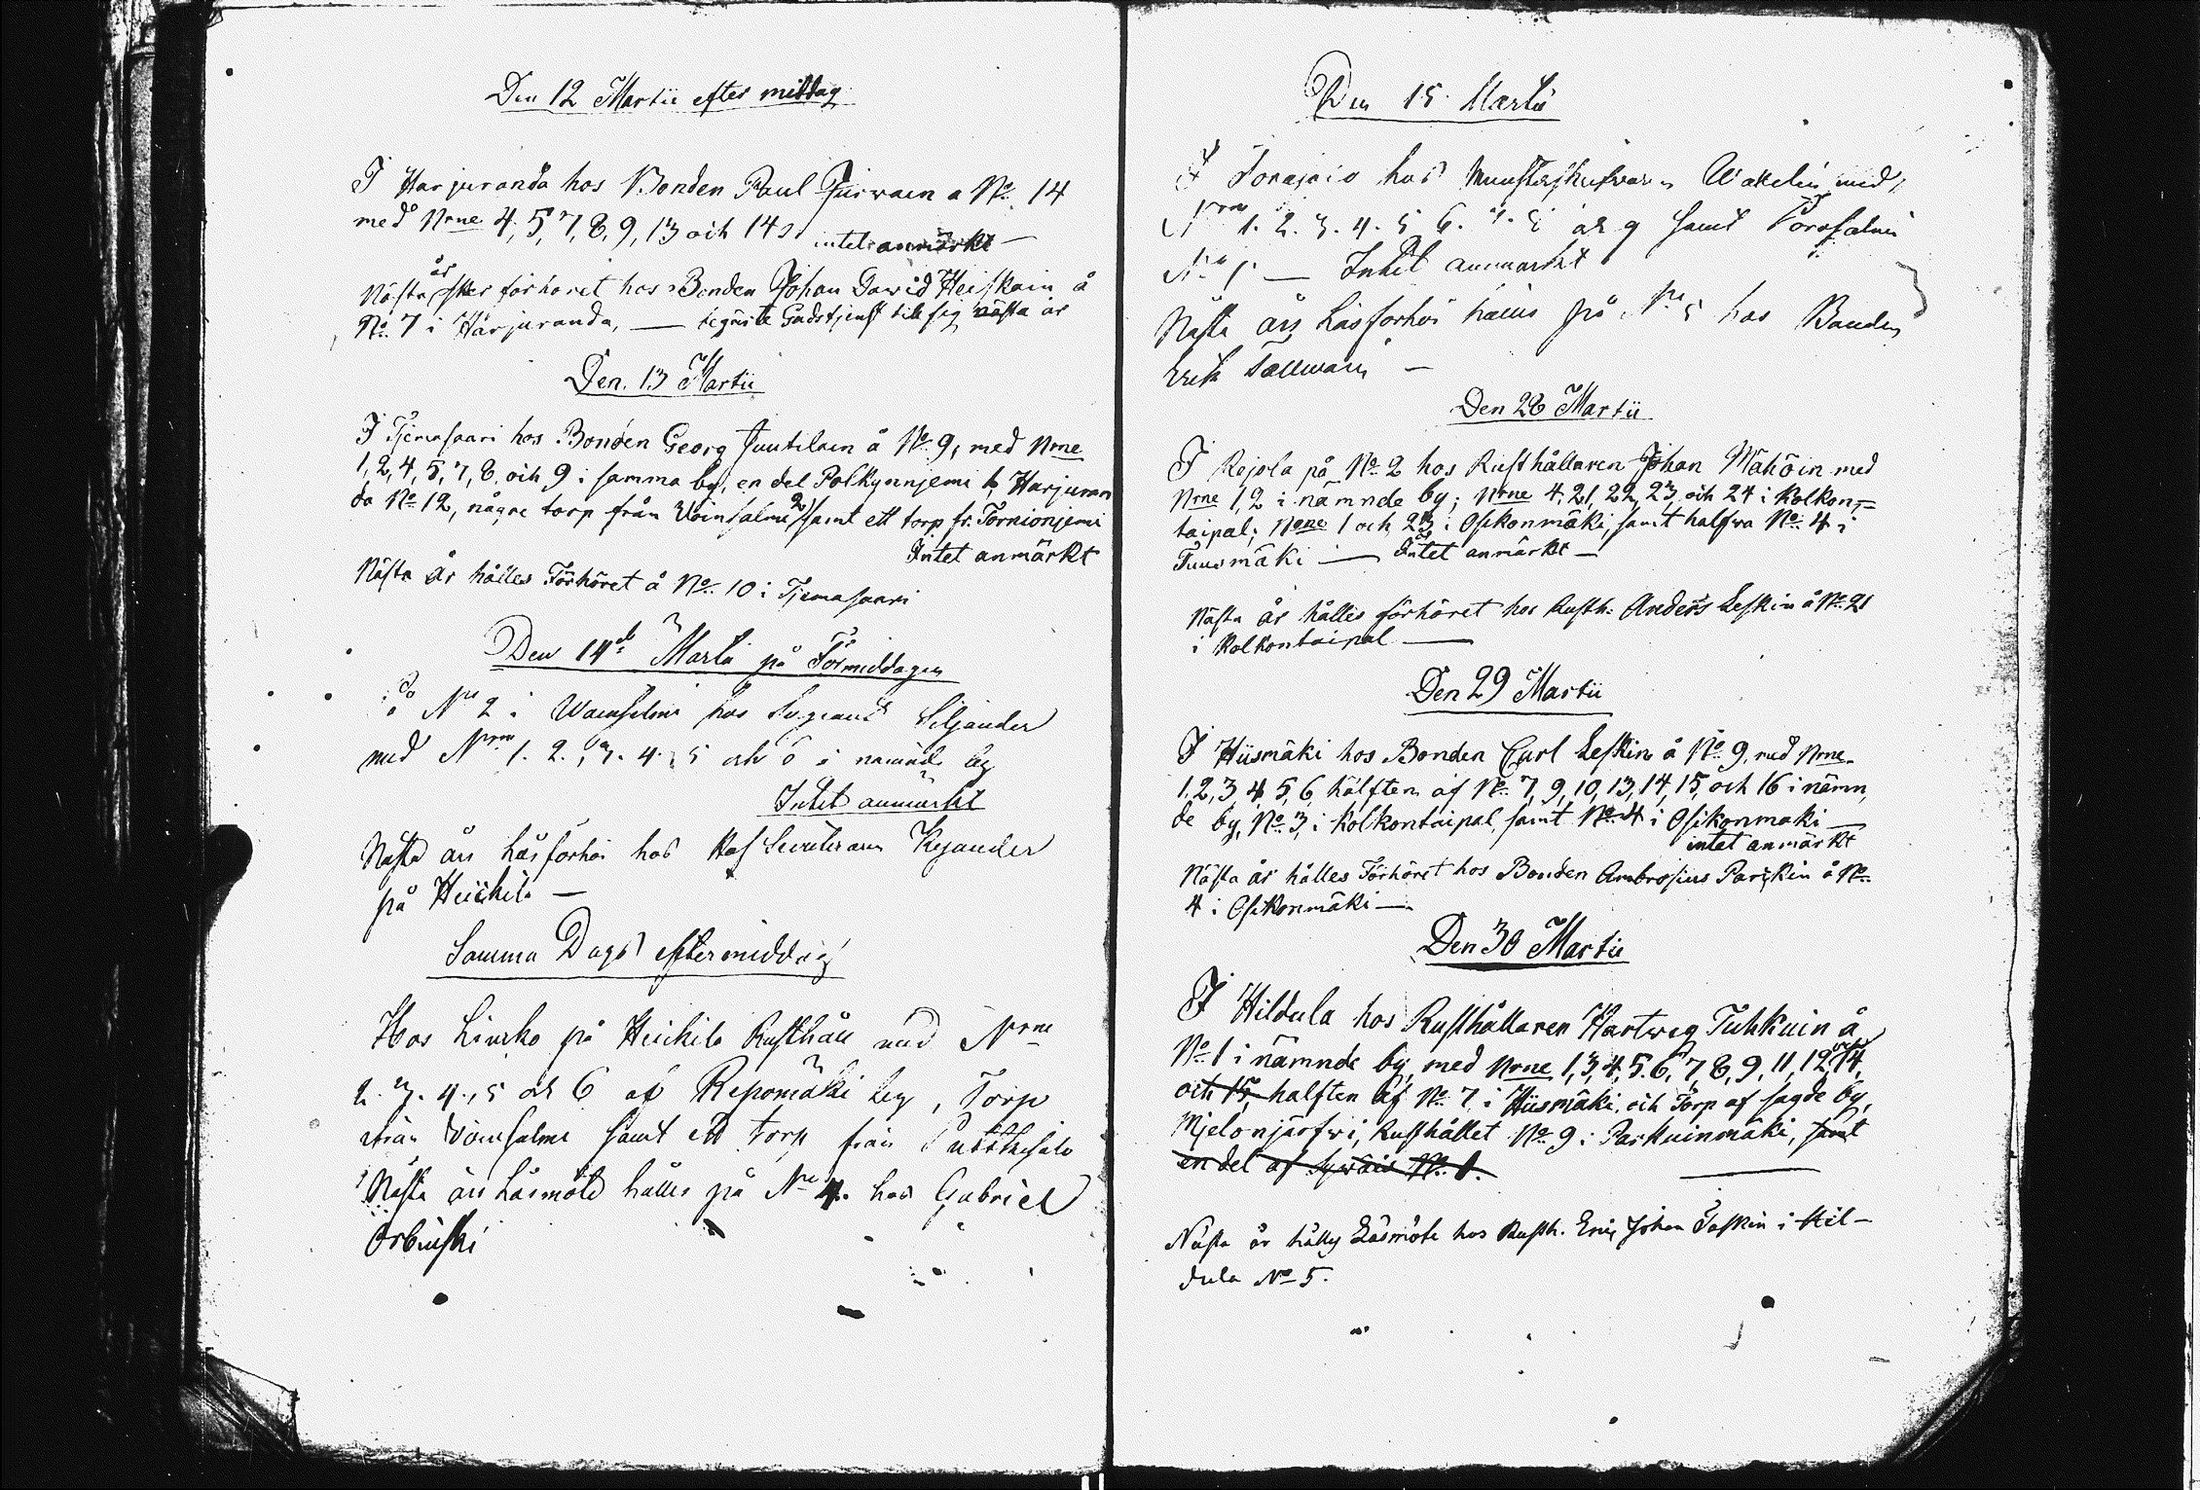 Den 12 Martii efter mittag
I Harjuranda hos Bonden Paul Purwain a No 14
med Nrne 4, 5, 7, 8, 9, 13 och 14
intet anmärkt —
Nästa år sker förhöret hos Bonden Johan Dawid Heiskain å
No 7 i Harjuranda, — begärte Gudstjenst till sig nästa år
Den 13 Martii
I Tjemasaari hos Bonden Georg Juutilain å No 9, med Nrne
1, 2, 4, 5, 7, 8, och 9 i samma by, en del Polkynnjemi b, Harjuran
da No 12, någre torp från Woinsalmi 2) samt ett torp fr. Tornionjemi
Intet anmärkt
Nästa år hålles Förhöret å No 10 i Tjemasaari
Den 14de Martii på Förmiddagen
På No 2 i Woinsalmi hos Sergeant Siljander
med Nrne 1. 2. 3. 4. 5 och 6 i nämnde by
Intet anmärkt
Nästa års läsförhör hos Kejander
på Heickilä —
Samma Dags eftermiddag
Hos Livsko på Heickilä Rusthåll med Nrne
2. 3. 4., 5 och 6 af Repomäki by, Torp
ifrån Woinsalmi samt ett torp från
Nästa års Läsmöte hålles på No 4. hos Gabriel
Orbinski
Den 15 Martii
I hos Wakelin med
Nrne 1. 2. 3. 4. 5 6. 7. 8 och 9 samt
No 1 — Intet anmärkt
Nästa års Läsförhör hålles på No 5 hos Bonden
Erik Tallwain —
Den 28 Martii
I Rejola på No 2 hos Rusthållaren Johan Mähöin med
Nrne 1, 2 i nämnde by; Nrne 4, 21, 22, 23, och 24 i Kolkon-
taipal; Nrne 1 och 23 i Osikonmäki, samt halfwa No 4 i
Tuusmäki — Intet anmärkt —
Nästa år hålles förhöret hos Rusth: Anders Leskin å No 21
i Kolkontaipal —
Den 29 Martii
I Hiismäki hos Bonden Carl Leskin å No 9, med Nrne
1, 2, 3, 4, 5, 6, hälften af No 7, 9, 10, 13, 14, 15, och 16 i nämn
de by, No 3, i Kolkontaipal, samt No 4 i Osikonmaki —
intet anmärkt
Nästa år hålles Förhöret hos Bonden Ambrosius Parkin å No
4 i Osikonmäki —
Den 30 Martii
I Hildula hos Rusthållaren Hartwig Tuhkuin å
No 1 i nämnde by, med Nrne 1, 3, 4, 5, 6, 7, 8, 9, 11, 12 och 14,
och 15, halften af No 7 i Hiismäki, och Torp af sagde by,
Mjelonjärfwi, Rusthållet No 9 i Parkuinmäki, samt
en del af Sywäis No 1.
Nästa år hålles Läsmöte hos Rusth. Eric Johan Taskin i Hil-
dula No 5.